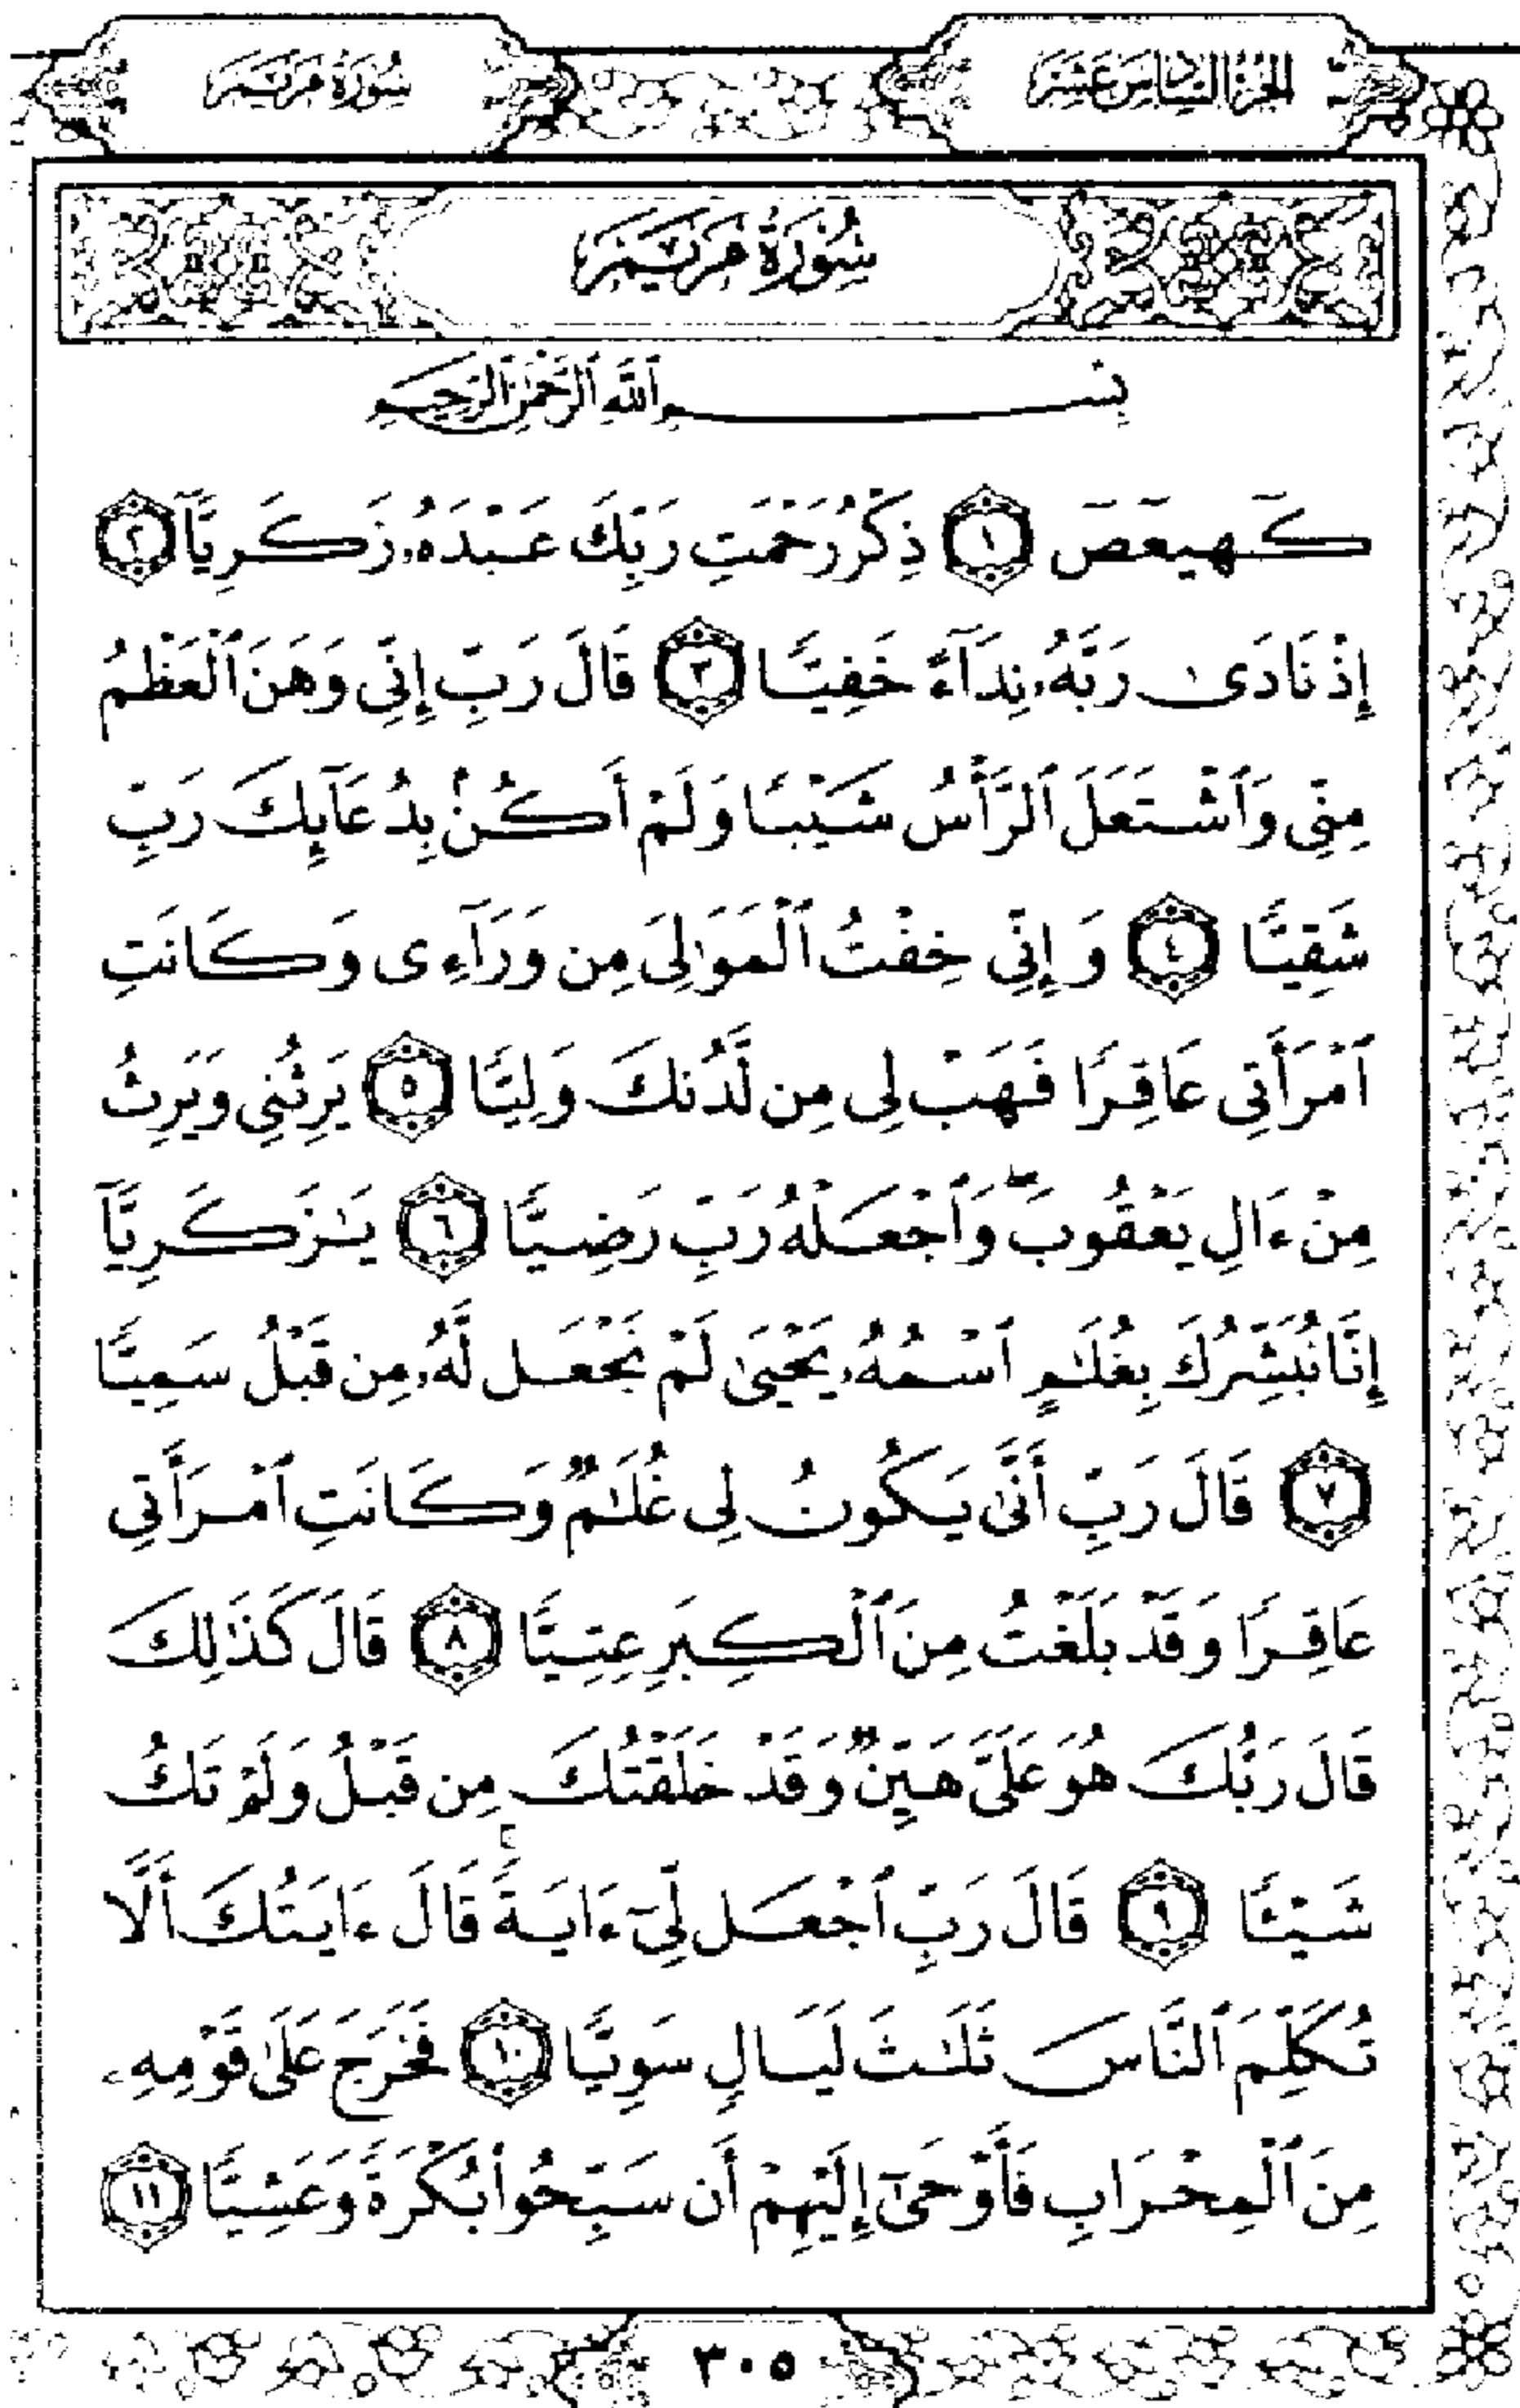 الجزء السادس عشر
سورة مريم
سورة مريم
بِسْمِ ٱللَّهِ ٱلرَّحْمَٰنِ ٱلرَّحِيمِ
كٓهيعٓصٓ ١ ذِكْرُ رَحْمَتِ رَبِّكَ عَبْدَهُۥ زَكَرِيَّآ ٢
إِذْ نَادَىٰ رَبَّهُۥ نِدَآءً خَفِيًّا ٣ قَالَ رَبِّ إِنِّى وَهَنَ ٱلْعَظْمُ
مِنِّى وَٱشْتَعَلَ ٱلرَّأْسُ شَيْبًا وَلَمْ أَكُنۢ بِدُعَآئِكَ رَبِّ
شَقِيًّا ٤ وَإِنِّى خِفْتُ ٱلْمَوَٰلِىَ مِن وَرَآءِى وَكَانَتِ
ٱمْرَأَتِى عَاقِرًا فَهَبْ لِى مِن لَّدُنكَ وَلِيًّا ٥ يَرِثُنِى وَيَرِثُ
مِنْ ءَالِ يَعْقُوبَ ۖ وَٱجْعَلْهُ رَبِّ رَضِيًّا ٦ يَٰزَكَرِيَّآ
إِنَّا نُبَشِّرُكَ بِغُلَٰمٍ ٱسْمُهُۥ يَحْيَىٰ لَمْ نَجْعَل لَّهُۥ مِن قَبْلُ سَمِيًّا
٧ قَالَ رَبِّ أَنَّىٰ يَكُونُ لِى غُلَٰمٌ وَكَانَتِ ٱمْرَأَتِى
عَاقِرًا وَقَدْ بَلَغْتُ مِنَ ٱلْكِبَرِ عِتِيًّا ٨ قَالَ كَذَٰلِكَ
قَالَ رَبُّكَ هُوَ عَلَىَّ هَيِّنٌ وَقَدْ خَلَقْتُكَ مِن قَبْلُ وَلَمْ تَكُ
شَيْـًٔا ٩ قَالَ رَبِّ ٱجْعَل لِّىٓ ءَايَةً ۚ قَالَ ءَايَتُكَ أَلَّا
تُكَلِّمَ ٱلنَّاسَ ثَلَٰثَ لَيَالٍ سَوِيًّا ١٠ فَخَرَجَ عَلَىٰ قَوْمِهِۦ
مِنَ ٱلْمِحْرَابِ فَأَوْحَىٰٓ إِلَيْهِمْ أَن سَبِّحُوا۟ بُكْرَةً وَعَشِيًّا ١١
٣٠٥